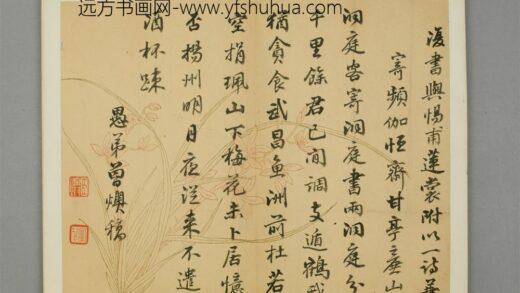 远方书画网-www.yfshuhua.com
復書與惕甫蓮裳附以一詩兼
寄頻伽恒齋甘亭
洞庭客寄洞庭書兩洞庭分
千里餘君已聞調支遁鶴我
猶貪食武昌魚洲前杜若
空捐珮山下梅花未卜居憶
否揚州明月夜從來不遣
酒杯疎
愚弟曾燠稿